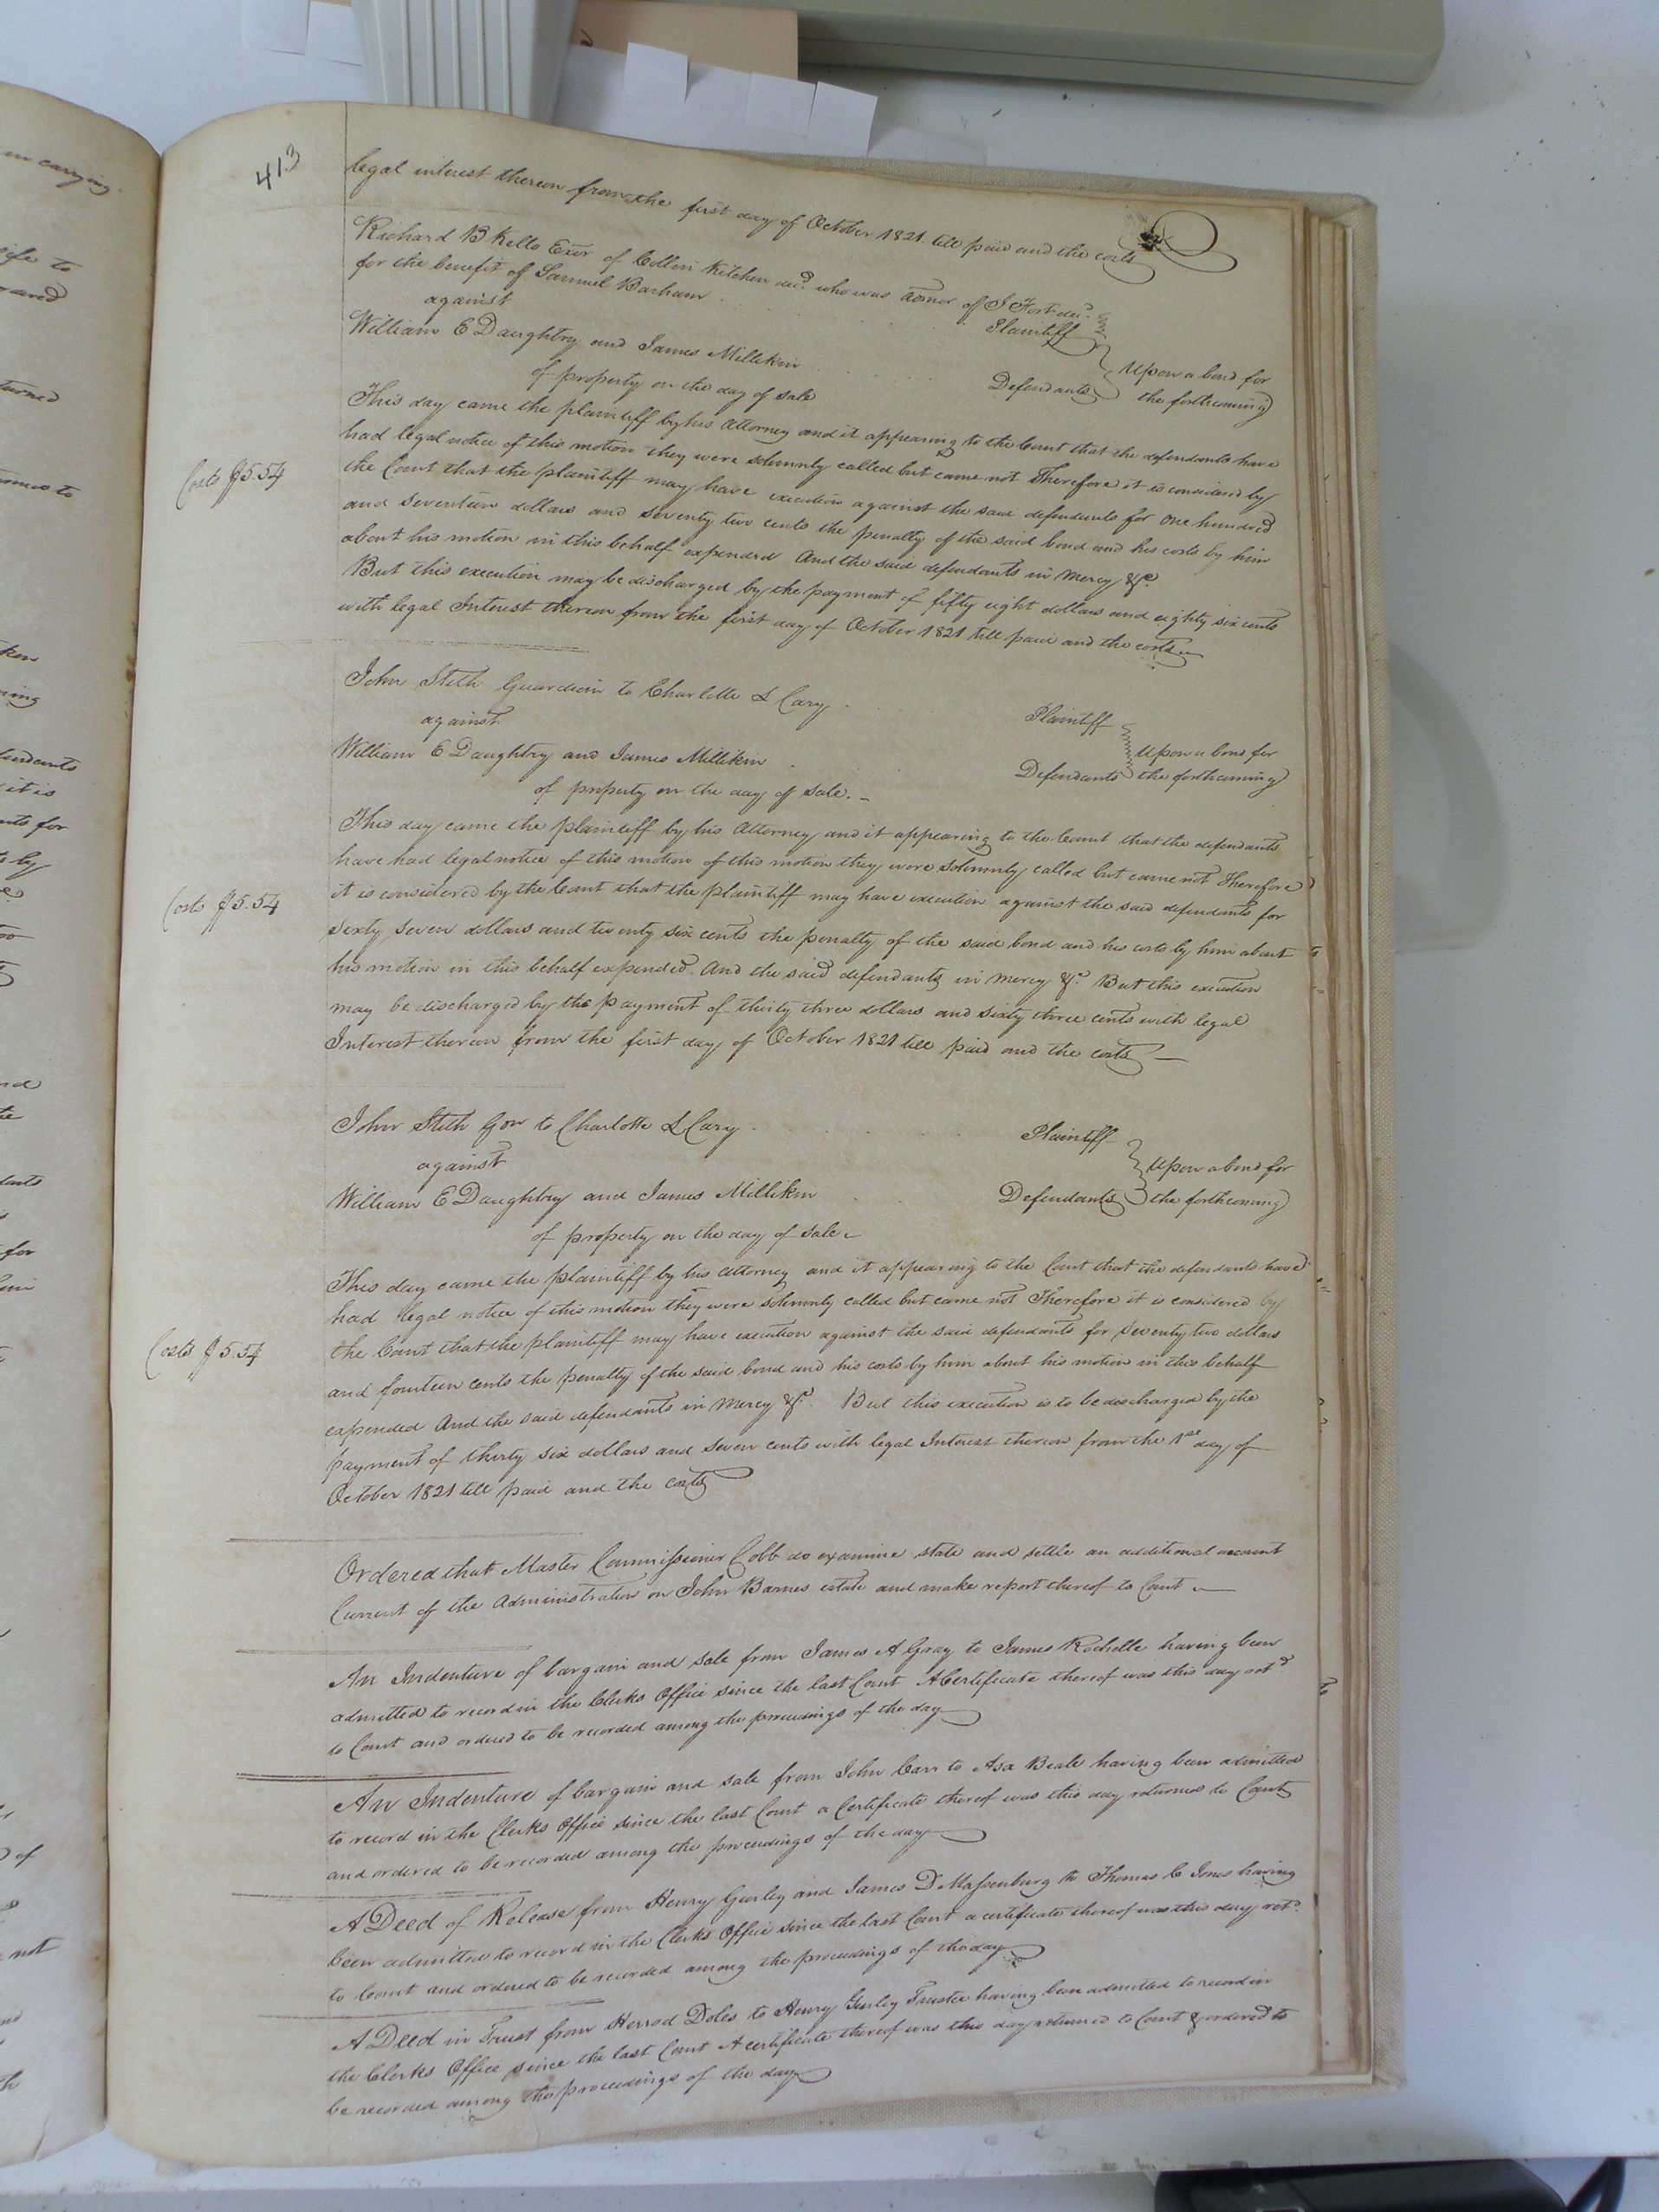 413
legal interest thereon from the first day of October 1821 till paid and the costs
Richard B Kello Exor of Collin Kitchen decd who was admor of J Fort decd
for the benefit of Samuel Barham Plaintiff
against
William E Daughtry and James Millikin Defendants
Upon a bond for
the forthcoming
of property on the day of sale
This day came the plaintiff by his Attorney and it appearing to the Court that the defendants have
had legal notice of this motion they were solemnly called but came not Therefore it is considered by
Costs $5.54
the Court that the plaintiff may have execution against the said defendants for One hundred
and seventeen dollars and seventy two cents the penalty of the said bond and his costs by him
about his motion in this behalf expended And the said defendants in mercy &c
But this execution may be discharged by the payment of fifty eight dollars and eighty six cents
with legal Interest thereon from the first day of October 1821 till paid and the costs
John Stith Guardian to Charlotte L Cary Plaintiff
against
William E Daughtry and James Millikin Defendants
Upon a bond for
the forthcoming
of property on the day of sale. –
This day came the plaintiff by his Attorney and it appearing to the Court that the defendants
have had legal notice of this motion of this motion they were solemnly called but came not Therefore
Costs $5.54
it is considered by the Court that the plaintiff may have execution against the said defendants for
Sixty seven dollars and twenty six cents the penalty of the said bond and his costs by him about
his motion in this behalf expended. And the said defendants in mercy &c But this execution
may be discharged by the payment of thirty three dollars and sixty three cents with legal
Interest thereon from the first day of October 1821 till paid and the costs –
John Stith Gon to Charlotte L Cary Plaintiff
against
William E Daughtry and James Millikin Defendants
Upon a bond for
the forthcoming
of property on the day of sale
This day came the plaintiff by his attorney and it appearing to the Court that the defendants have
had legal notice of this motion they were solemnly called but came not Therefore it is considered by
Costs $5.54
the Court that the plaintiff may have execution against the said defendants for seventy two dollars
and fourteen cents the penalty of the said bond and his costs by him about his motion in this behalf
expended And the said defendants in mercy &c. But this execution is to be discharged by the
payment of thirty six dollars and seven cents with legal Interest thereon from the 1st day of
October 1821 till paid and the costs
Ordered that Master Commissioner Cobb do examine state and settle an additional account
Current of the administration on John Barnes estate and make report thereof to Court
An Indenture of bargain and sale from James A Gray to James Rochelle having been
admitted to record in the Clerks Office since the last Court A Certificate thereof was this day retd
to Court and ordered to be recorded among the proceedings of the day
An Indenture of bargain and sale from John Carr to Asa Beale having been admitted
to record in the Clerks Office since the last Court a Certificate thereof was this day returned to Court
and ordered to be recorded among the proceedings of the day
A Deed of Release from Henry Gurley and James D Massenburg to Thomas C Jones having
been admitted to record in the Clerks Office since the last Court a certificate thereof was this day retd
to Court and ordered to be recorded among the proceedings of the day
A Deed in Trust from Herrod Doles to Henry Gurley Trustee having been admitted to record in
the Clerks Office since the last Court A certificate thereof was this day returned to Court & ordered to
be recorded among the proceedings of the day